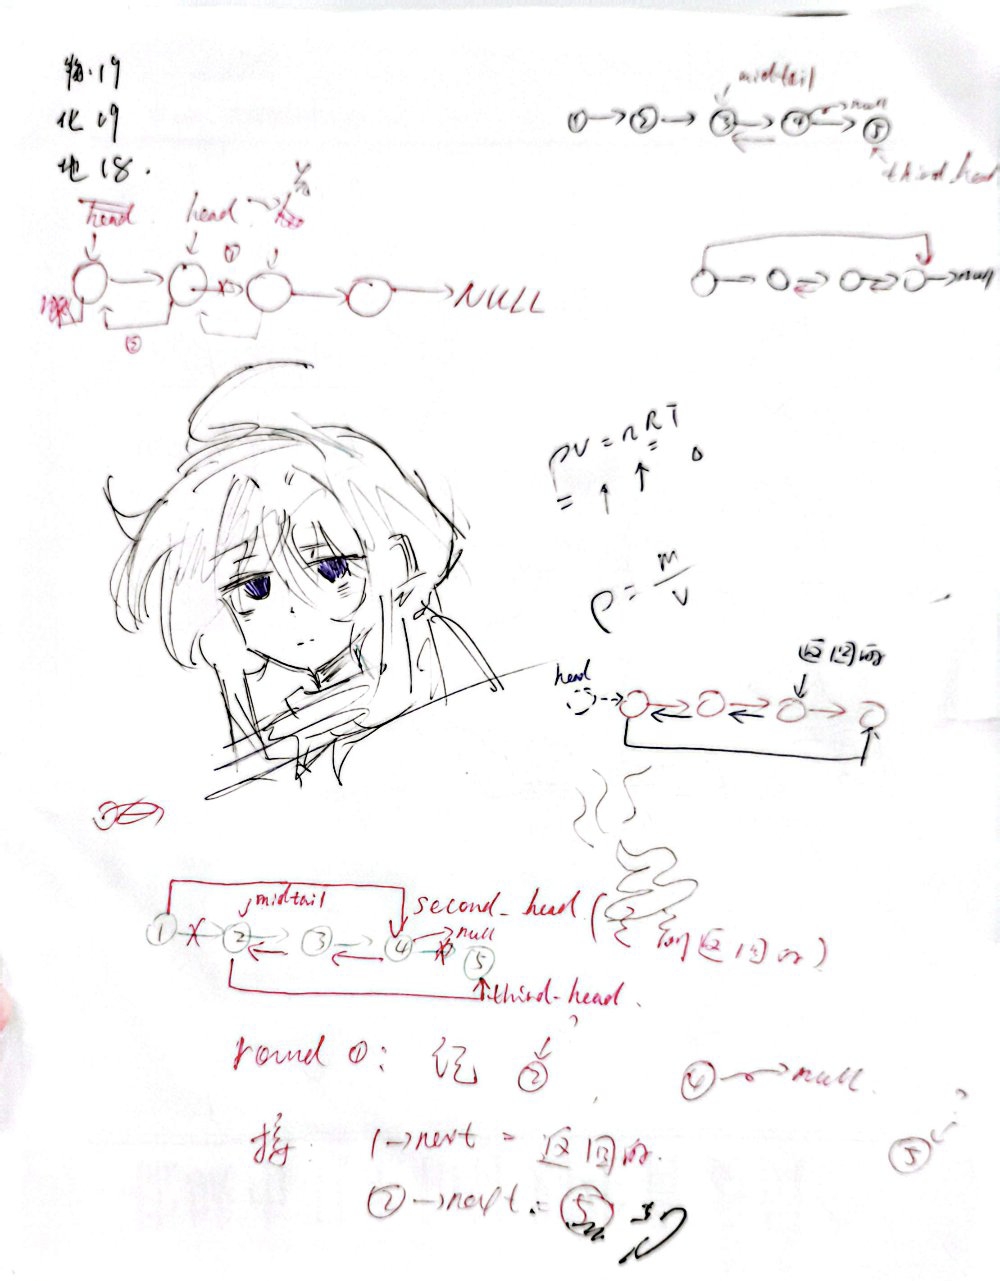 物.19
化09
地18.
mid-tail
① → ② → ③ → ④ → null
⑤
third_head
head head
①
NULL
②
null
PV = nRT
ρ = m/V
head
返回的
midtail
second_head (
返回的)
① ② ③ ④ null
⑤
third-head.
round ①: 记 ②
④ → null.
接: 1→next = 返回的.
⑤
②→next = ⑤